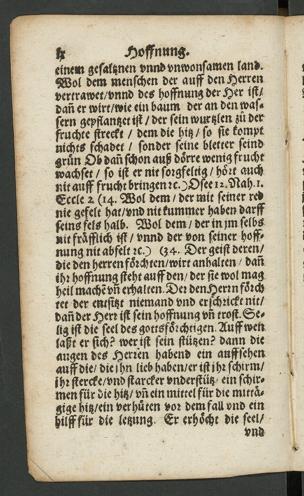 Hoffnung.
einem gesaltznen vnnd vnwonsamen land.
Wol dem menschen der auff den Herren
vertrawet/vnnd des hoffnung der Her ist/
dañ er wirt/wie ein baum der an den was-
sern gepflantzet ist/der sein wurtzlen zů der
fruchte streckt / dem die hitz / so sie kompt
nichts schadet / sonder seine bletter seind
grün Ob dañ schon auß dörre wenig frucht
wachset / so ist er nit sorgfeltig / hört auch
nit auff frucht bringen ꝛc.) Osee 12. Nah. 1.
Eccle 2 (14. Wol dem / der mit seiner red
nie gefelt hat/vnd nit kummer haben darff
seins fels halb. Wol dem / der in jm selbs
nit fräfflich ist / vnnd der von seiner hoff-
nung nit abfelt ꝛc.) (34. Der geist deren/
die den herren förchten/wirt anhalten / dañ
ihr hoffnung steht auff den/der sie wol mag
heil machẽ vñ erhalten. Der den Herrn förch
tet der entsitzt niemand vnd erschrickt nit/
dañ der Herr ist sein hoffnung vñ trost. Se-
lig ist die seel des gottsförchtigen. Auff wen
laßt er sich? wer ist sein stützen? dann die
augen des Herren habend ein auffsehen
auff die/die ihn lieb haben/er ist ihr schirm/
ihr stercke/vnd starcker vnderstütz/ein schir-
men für die hitz/vñ ein mittel für die mittä-
gige hitz/ein verhüten vor dem fall vnd ein
hilff für die letzung. Er erhöcht die seel/
vnd